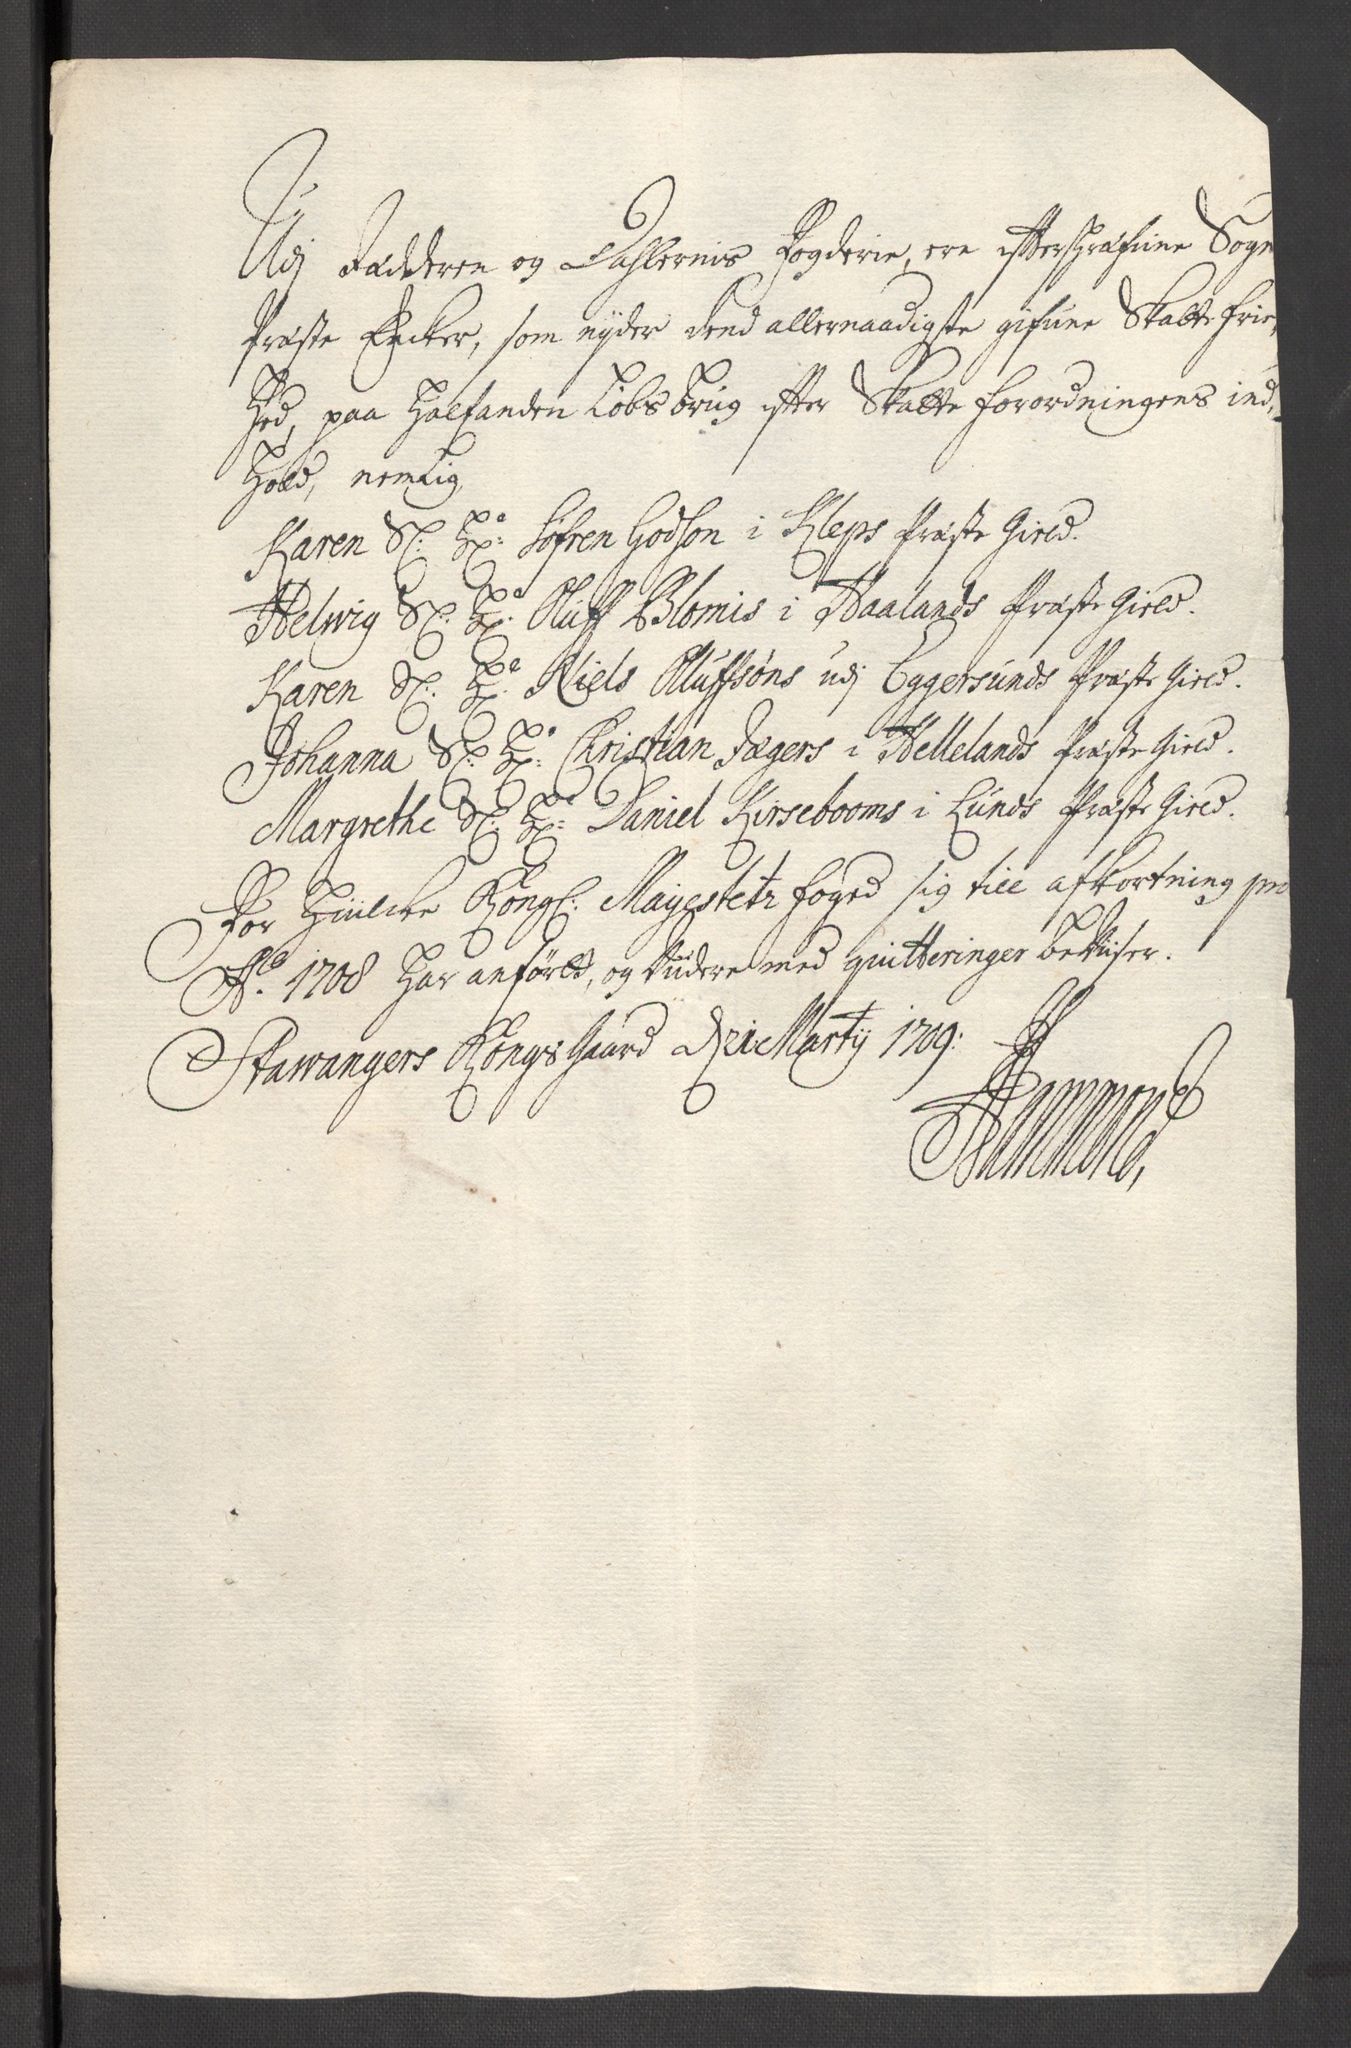 Udj Jædderen og Dahlernis Fogderie, ere effterschrefune Sogne
Præste Encker, som nyder dend allernaadigste gifune Skatte frie,
Hed, paa Halfanden Løbs brug effter Skatte forordningens ind,
Hold, nemlig
Karen Sl: Hr: Søfren Godson i Kleps Præste Gield.
Helwig Sl: Hr: Oluff Blomis i Haalands Præste Gield.
Karen Sl: Hr: Niels Oluffsøns udj Eggersunds Præste Gield.
Johanna Sl: Hr: Christian Jægers i Hellelands Præste Gield.
Margrethe Sl: Hr: Daniel Kirsebooms i Lunds Præste Gield.
For Huilcke Kongl: Mayestetz foged sig till afkortning pro
Ao. 1708 Har anført, og widere med quitteringer beviser.
Stawangers Kongs Gaard d. 21 Martij 1709:
Hammond,